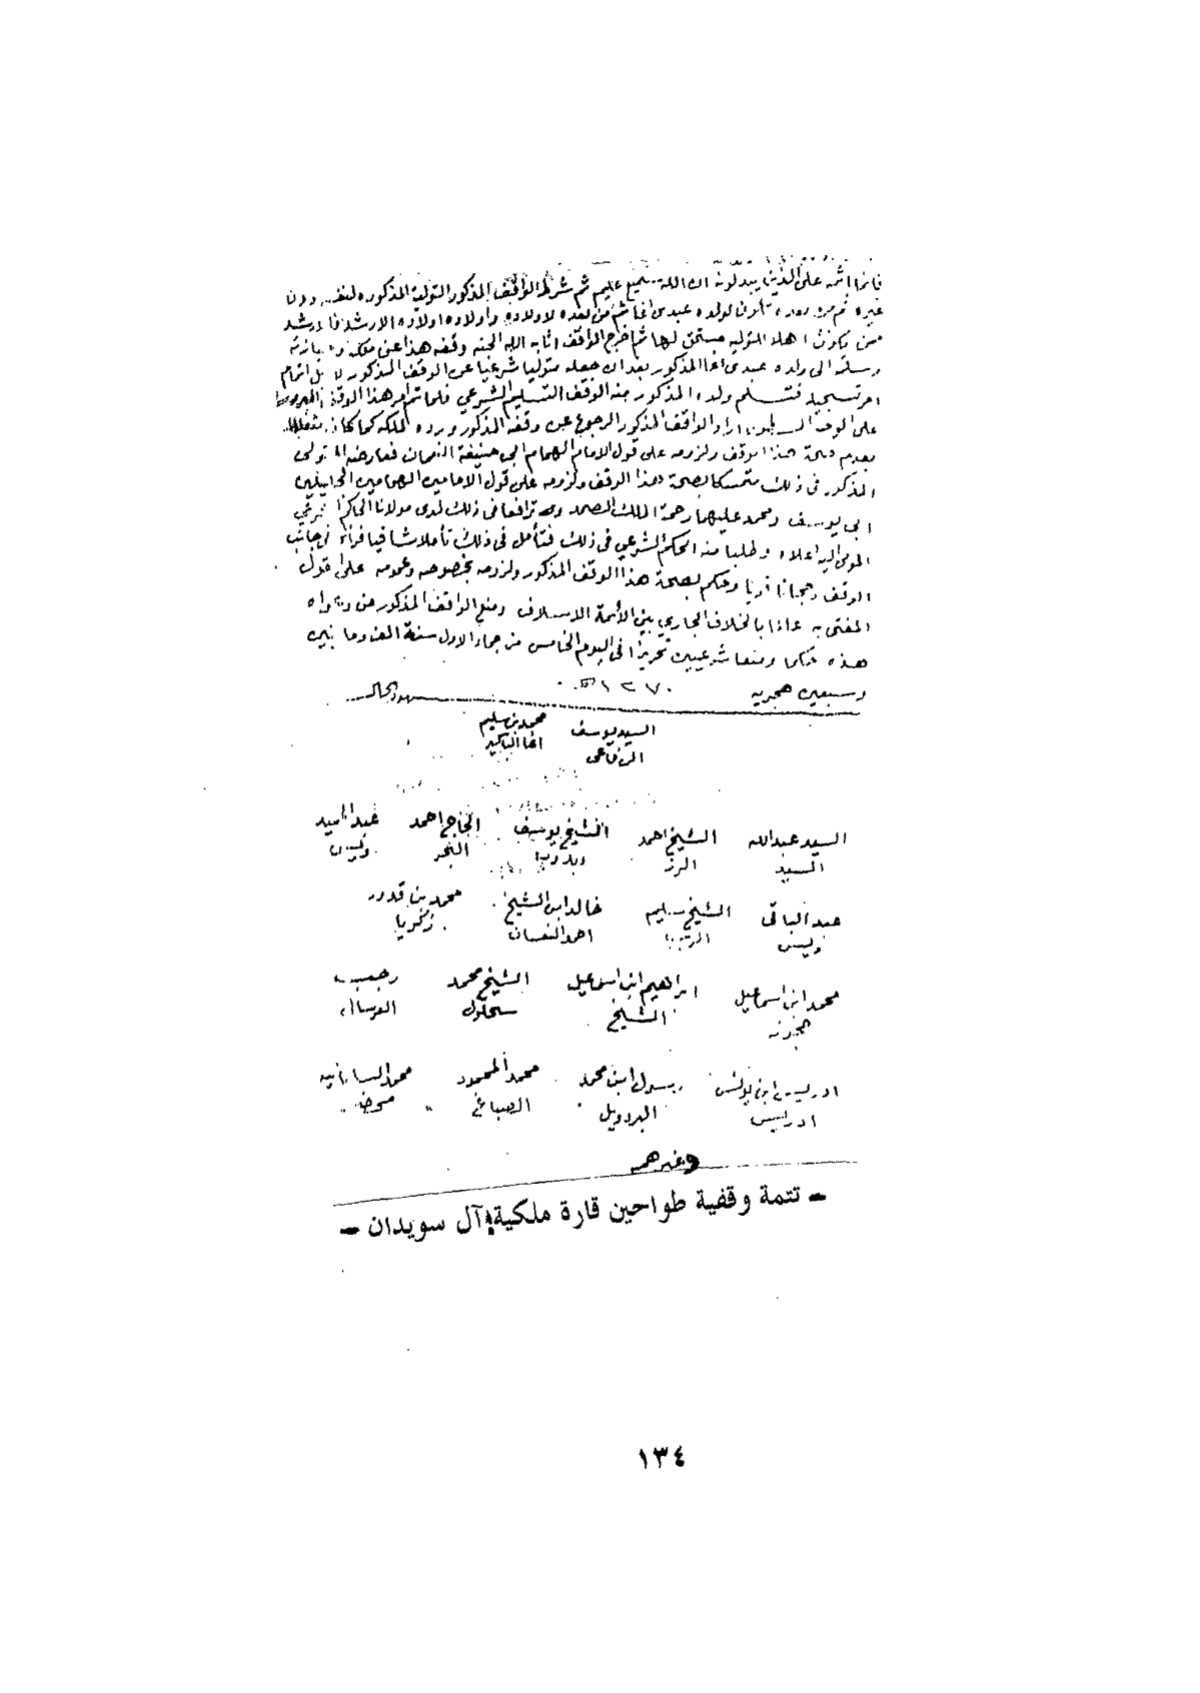 فانما اثمه على الذين يبدلونه ان الله سميع عليم ثم شرط الواقف المذكور التولية المذكورة لنفسه دون
غيره ثم من بعده تكون لولده عبدي اغا ثم من بعده لاولاده واولاد اولاده الارشد فالارشد
ممن يكون اهلا للتوليه مستحق لها ثم اخرج الواقف اثابه الله الجنه وقفه هذا عن ملكه
وسلمه الى ولده عبدي اغا المذكور بعد ان جعله متوليا شرعيا عن الوقف المذكور لاجل اتمام
امر تسجيله فتسلم ولده المذكور منه الوقف التسليم الشرعي فلما تم امر هذا الوقف
على الوجه اراد الواقف المذكور الرجوع عن وقفه المذكور ورده لملكه كما كان
بعدم صحة هذا الوقف ولزومه على قول الامام الهمام ابي حنيفة النعمان فعارضه المتولي
المذكور في ذلك متمسكا بصحة هذا الوقف ولزومه على قول الامامين الهمامين الجليلين
ابي يوسف ومحمد عليهما رحمة الملك الصمد وترافعا في ذلك لدى مولانا الحاكم الشرعي
المومى اليه اعلاه وطلبا منه الحكم الشرعي في ذلك فتأمل في ذلك تأملا شافيا فرأى في جانب
الوقف رجحانا قويا وحكم بصحة هذا الوقف المذكور ولزومه بخصوصه وعمومه على قول
المفتى به عالما بالخلاف الجاري بين الأئمة الاسلاف ومنع الواقف المذكور من دعواه
هذه حكما ومنعا شرعيين تحريرا في اليوم الخامس من جماد الاول سنة الف ومايتين
وسبعين هجريه ١٢٧٠
شهود الحال
السيد يوسف الرفاعي
محمد بن سليم اغا
السيد عبدالله السيد
الشيخ احمد الرز
الشيخ يوسف
الحاج احمد
عبد
عبد الباقي
الشيخ سليم
خالد ابن الشيخ احمد النعسان
محمد بن قدور زكريا
محمد ابن اسماعيل
ابراهيم ابن اسماعيل الشيخ
الشيخ محمد سحلول
رجب
ادريس ابن يونس ادريس
رسول ابن محمد البردويل
محمد المحمود الصباغ
محمد
وغيرهم
– تتمة وقفية طواحين قارة ملكية آل سويدان –
١٣٤